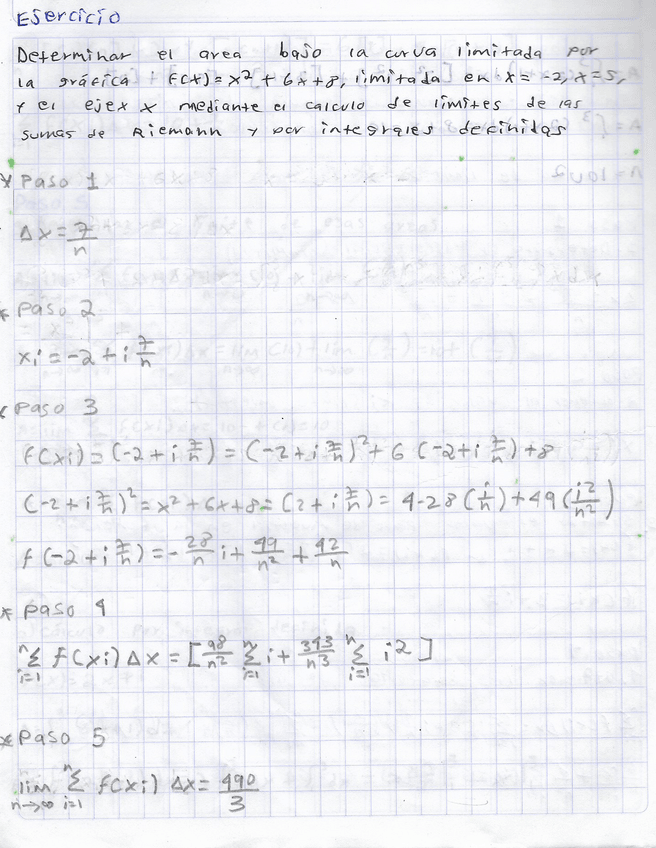 Ejercicio
Determinar el area bajo la curva limitada por
la gráfica : f(x) = x² + 6x + 8, limitada en x = -2, x = 5,
y el ejex x mediante el calculo de limites de las
sumas de Riemann y por integrales definidas
* Paso 1
Δx = 7/n
* Paso 2
xi = -2 + i 7/n
* Paso 3
f(xi) = (-2 + i 7/n) = (-2 + i 7/n)² + 6 (-2 + i 7/n) + 8
(-2 + i 7/n)² = x² + 6x + 8 = (2 + i 7/n) = 4 - 28 (i/n) + 49 (i²/n²)
f (-2 + i 7/n) = - 28/n i + 49/n² + 42/n
* Paso 4
n Σ i=1 f(xi) Δx = [98/n² n Σ i=1 i + 343/n³ n Σ i=1 i²]
* Paso 5
lim n→∞ n Σ i=1 f(xi) Δx = 490/3